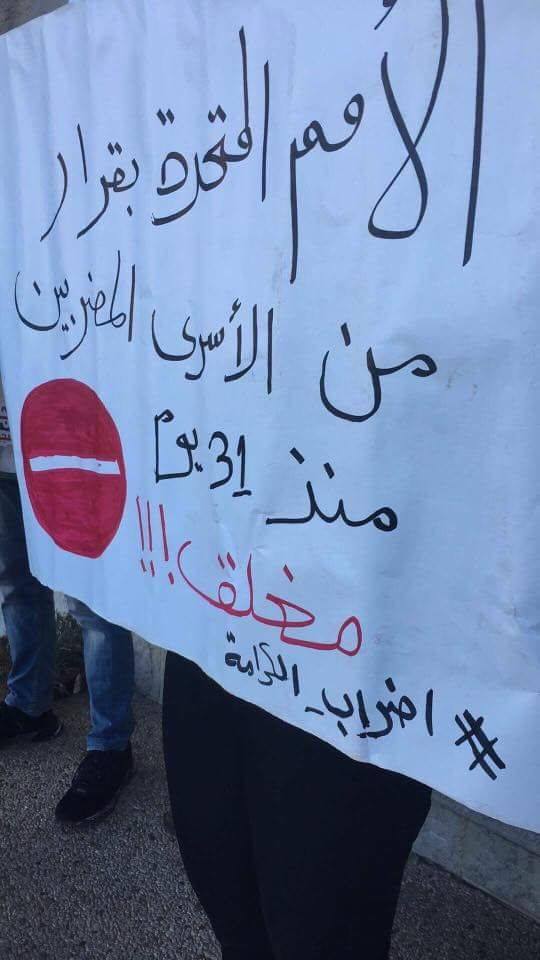 الأمم المتحدة بقرار
من الأسرى المضربين
منذ 31 يوم
مغلق!!!
#اضراب_الكرامة